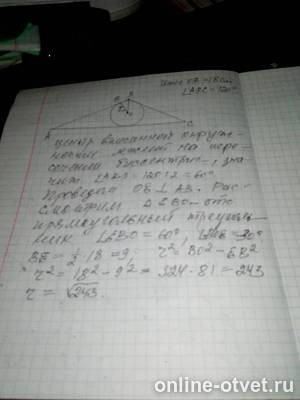 OB = 18 см
∠ABC = 120°
B
E
A
C
Центр вписанной окруж-
ности лежит на пере-
сечении биссектрис, зна-
чит 120:2 = 60°
Проведем OE ⊥ AB. Рас-
смотрим Δ EBO - это
прямоугольный треуголь-
ник ∠EBO = 60°,
BE = 1/2 · 18 = 9; r² = BO² - EB²
r² = 18² - 9² = 324 - 81 = 243
r = √243.
online-otvet.ru